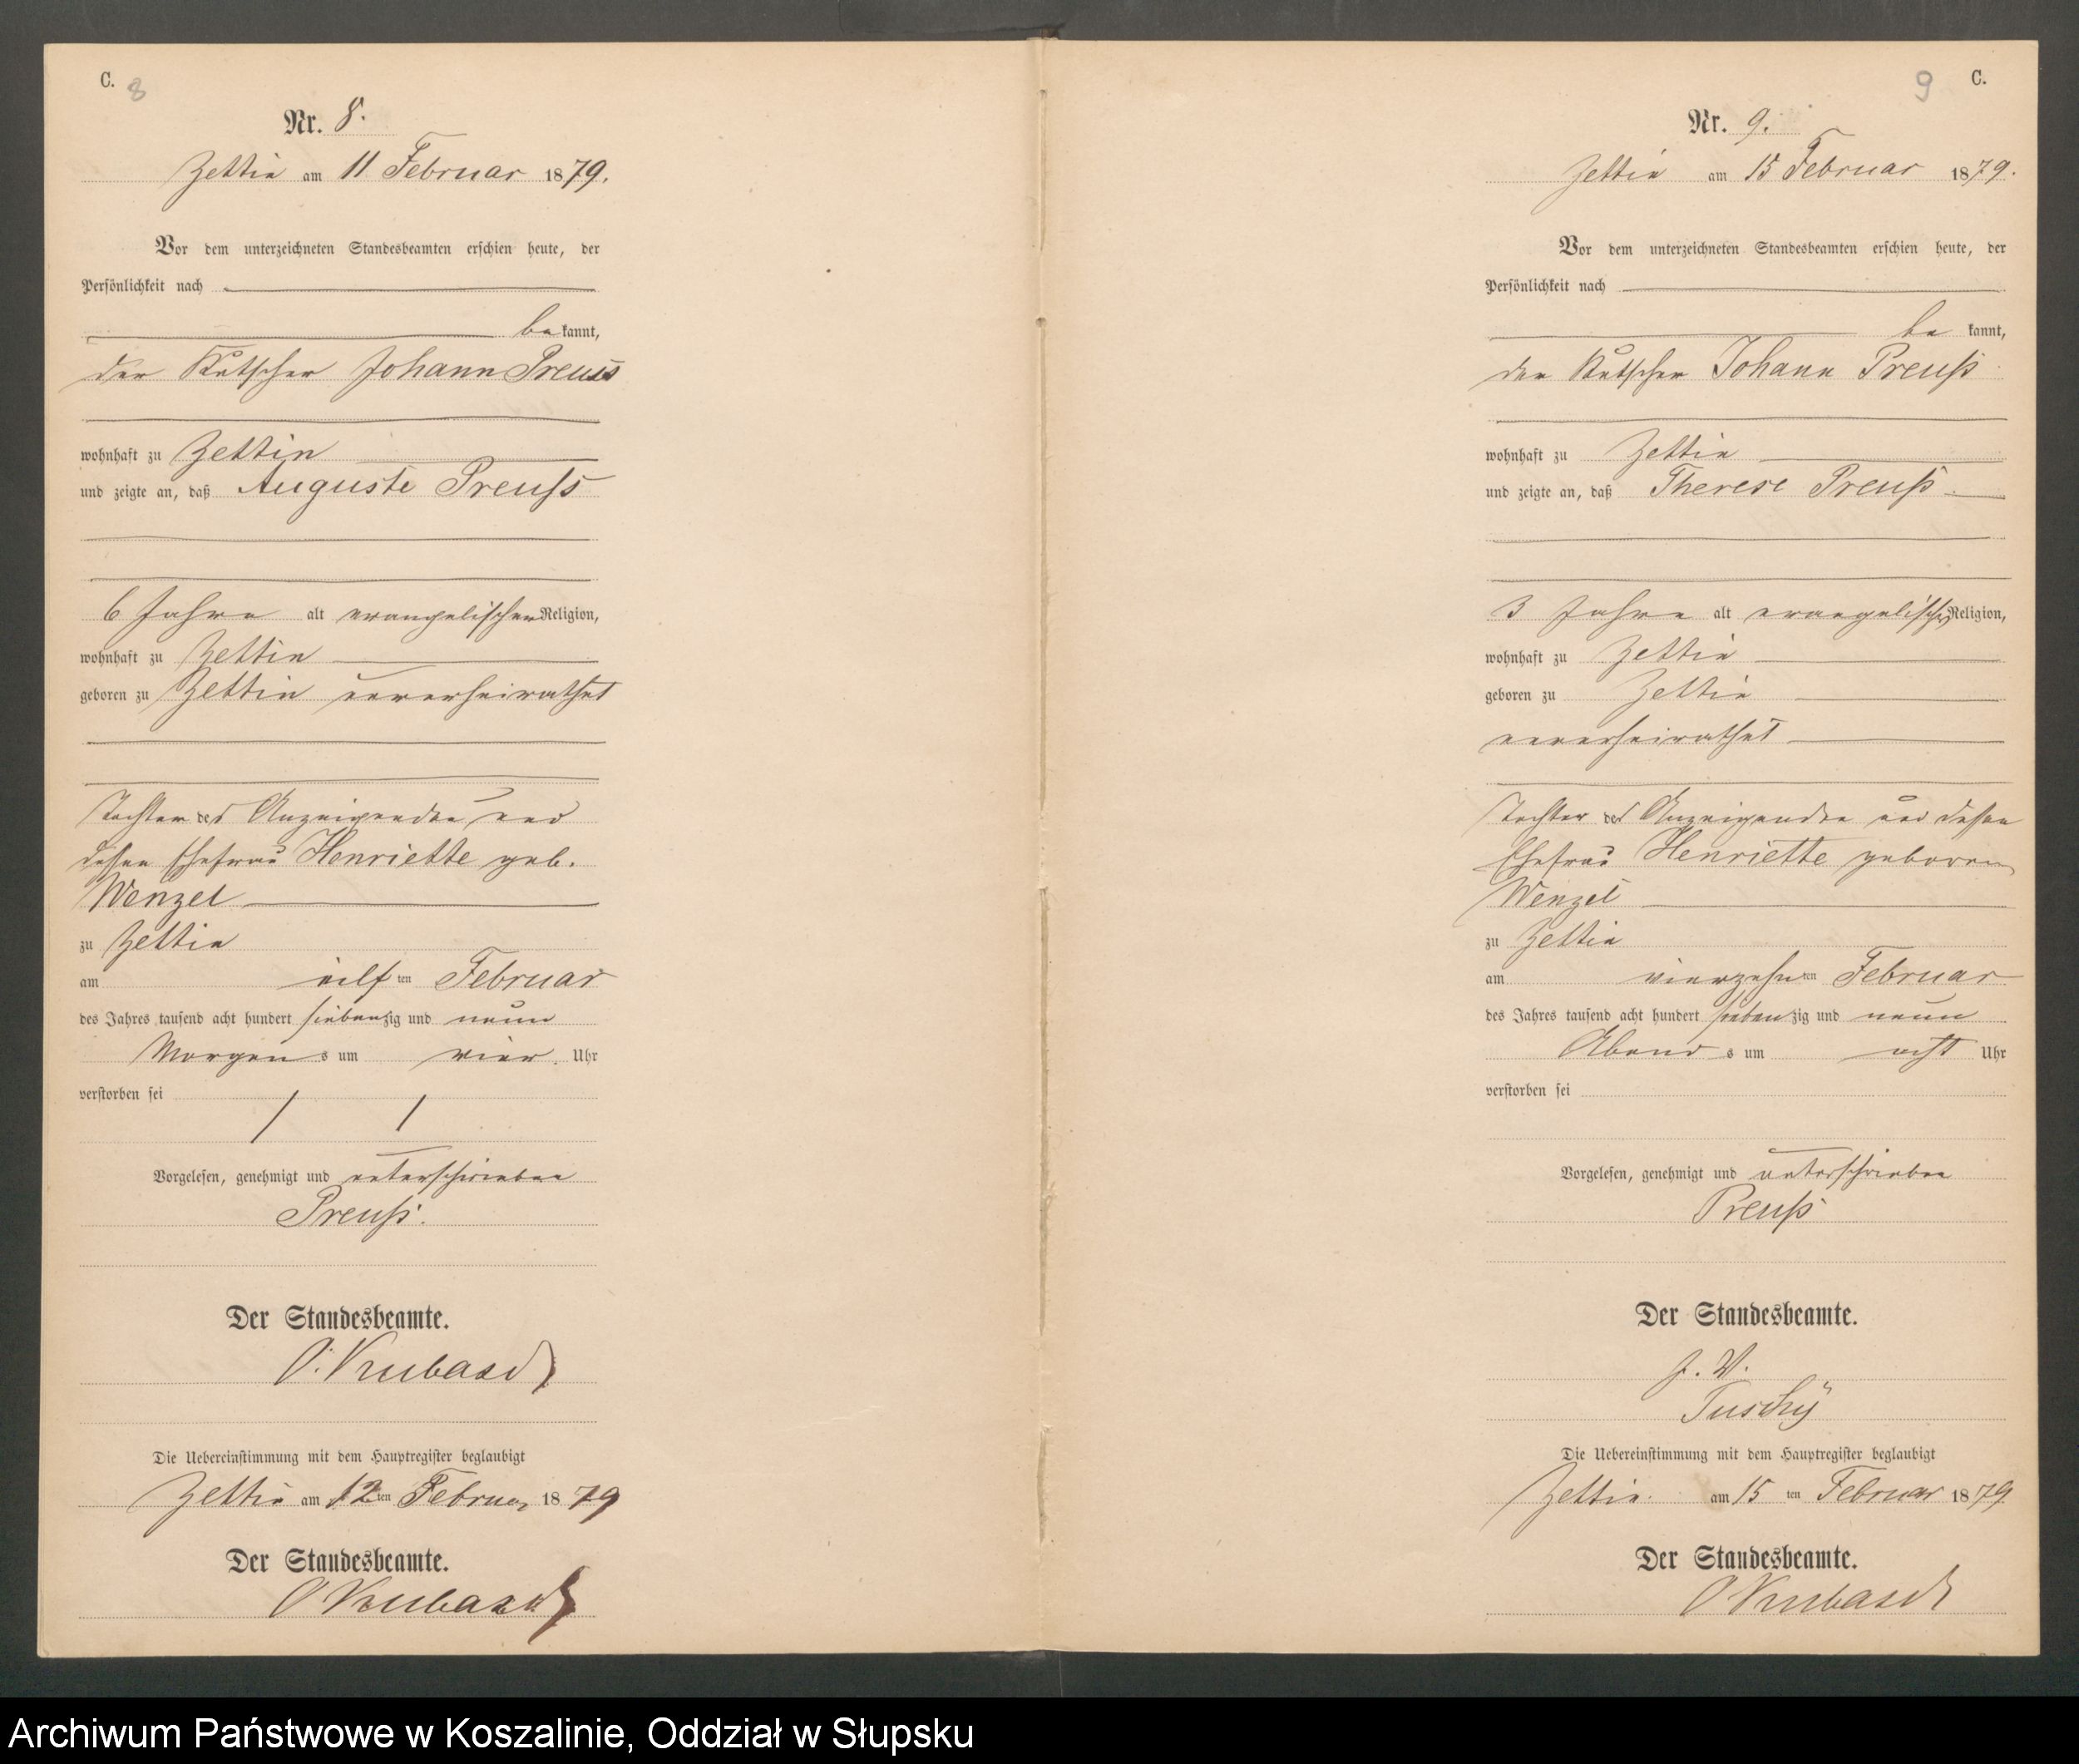 C. 8
Nr. 8.
Zettin am 11 Februar 1879.
Vor dem unterzeichneten Standesbeamten erschien heute, der
Persönlichkeit nach
be kannt,
der Kutscher Johann Preuss
wohnhaft zu Zettin
und zeigte an, daß Auguste Preuß
6 Jahre alt evangelischer Religion,
wohnhaft zu Zettin
geboren zu Zettin unverheirathet
Tochter des Anzeigenden und
dessen Ehefrau Henriette geb.
Wenzel
zu Zettin
am eilf ten Februar
des Jahres tausend acht hundert siebenzig und neun
Morgen s um vier Uhr
verstorben sei
Vorgelesen, genehmigt und unterschrieben
Preuß.
Der Standesbeamte.
Die Uebereinstimmung mit dem Hauptregister beglaubigt
Zettin am 12 ten Februar 1879
Der Standesbeamte.
9 C.
Nr. 9.
Zettin am 15 Februar 1879.
Vor dem unterzeichneten Standesbeamten erschien heute, der
Persönlichkeit nach
be kannt,
der Kutscher Johann Preuß
wohnhaft zu Zettin
und zeigte an, daß Therese Preuß
3 Jahre alt evangelischer Religion,
wohnhaft zu Zettin
geboren zu Zettin
unverheirathet
Tochter des Anzeigenden und dessen
Ehefrau Henriette geboren
Wenzel
zu Zettin
am vierzehn ten Februar
des Jahres tausend acht hundert sieben zig und neun
Abend s um acht Uhr
verstorben sei
Vorgelesen, genehmigt und unterschrieben
Preuß
Der Standesbeamte.
J. V.
Tuschy
Die Uebereinstimmung mit dem Hauptregister beglaubigt
Zettin am 15 ten Februar 1879.
Der Standesbeamte.
Archiwum Państwowe w Koszalinie, Oddział w Słupsku